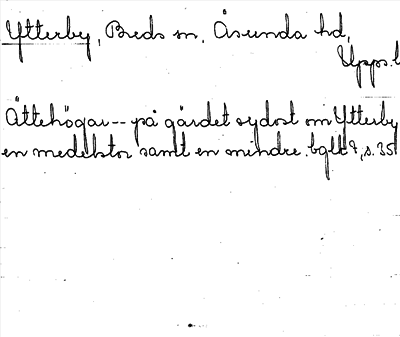 Ytterby, Breds sn, Åsunda hd,
Upps. l
Ättehögar -- på gärdet sydost om Ytterby
en medelstor samt en mindre. bglt 7, s. 35